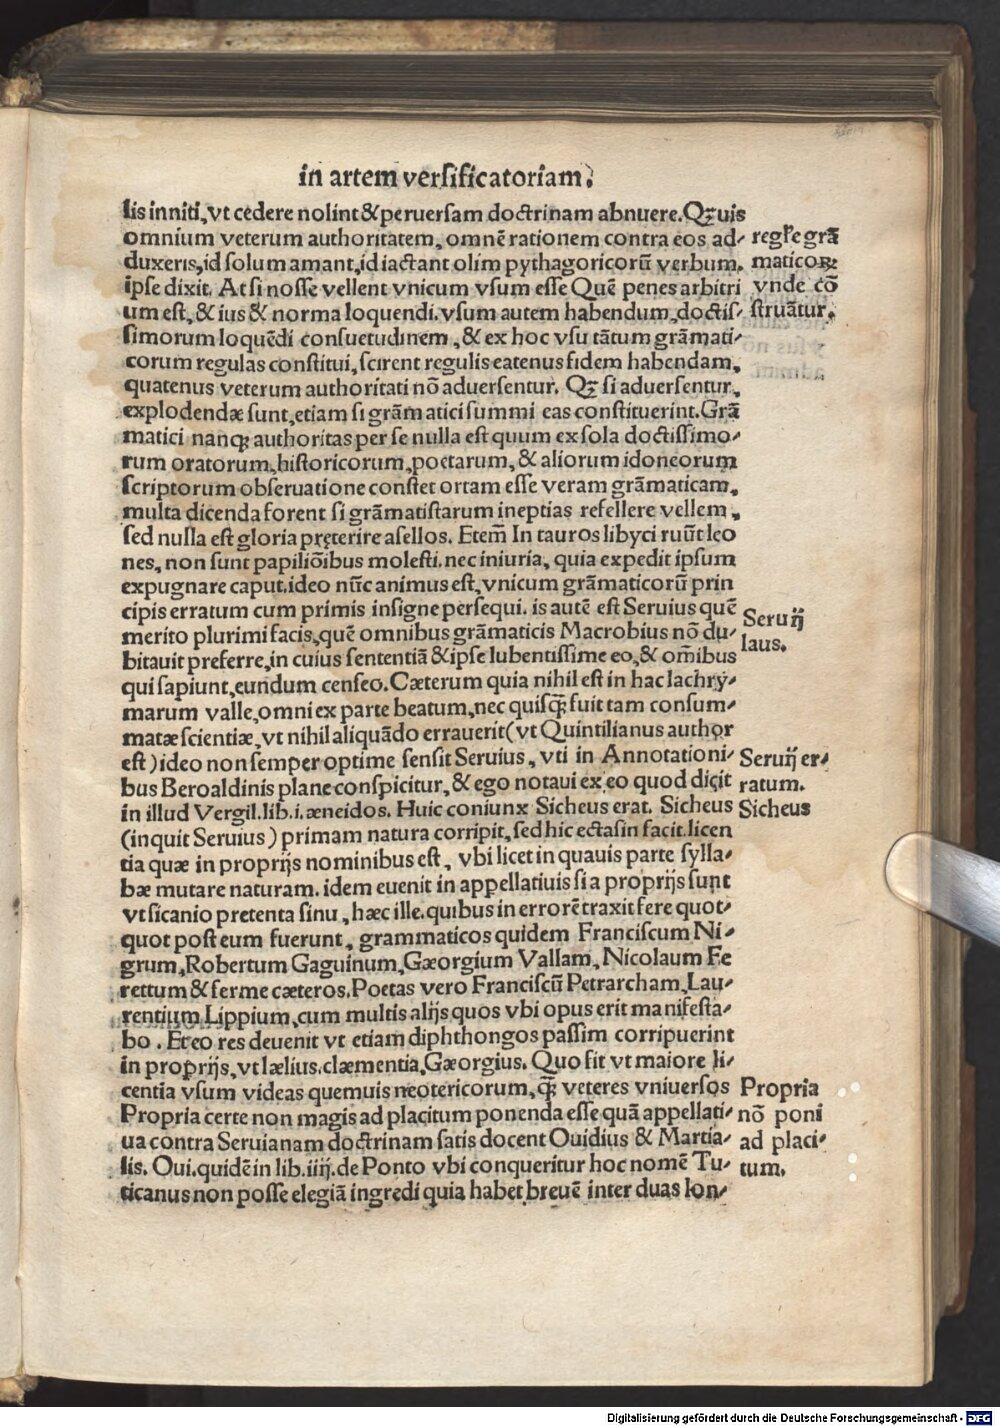 in artem versificatoriam.
lis inniti, vt cedere nolint & peruersam doctrinam abnuere. Qꝫuis
omnium veterum authoritatem, omnē rationem contra eos ad-
duxeris, id solum amant, id iactant olim pythagoricorū verbum.
ipse dixit. At si nosse vellent vnicum vsum esse Quē penes arbitri
um est, & ius & norma loquendi. vsum autem habendum, doctis-
simorum loquēdi consuetudinem, & ex hoc vsu tātum grāmati-
corum regulas constitui, scirent regulis eatenus fidem habendam,
quatenus veterum authoritati nō aduersentur. Qꝫ si aduersentur,
explodendæ sunt, etiam si grāmatici summi eas constituerint. Grā
matici nanqꝫ authoritas per se nulla est quum ex sola doctissimo-
rum oratorum, historicorum, poetarum, & aliorum idoneorum
scriptorum obseruatione constet ortam esse veram grāmaticam,
multa dicenda forent si grāmatistarum ineptias refellere vellem,
sed nulla est gloria pręterire asellos. Etem̄ In tauros libyci ruūt leo
nes, non sunt papiliōibus molesti. nec iniuria, quia expedit ipsum
expugnare caput. ideo nūc animus est, vnicum grāmaticorū prin
cipis erratum cum primis insigne persequi. is autē est Seruius quē
merito plurimi facis, quē omnibus grāmaticis Macrobius nō du-
bitauit preferre, in cuius sententiā & ipse lubentissime eo, & om̄ibus
qui sapiunt, eundum censeo. Cæterum quia nihil est in hac lachry-
marum valle, omni ex parte beatum, nec quisqꝫ̄ fuit tam consum-
matæ scientiæ, vt nihil aliquādo errauerit (vt Quintilianus author
est) ideo non semper optime sensit Seruius, vti in Annotationi-
bus Beroaldinis plane conspicitur, & ego notaui ex eo quod dicit
in illud Vergil. lib. i. æneidos. Huic coniunx Sicheus erat. Sicheus
(inquit Seruius) primam natura corripit, sed hic ectasin facit. licen
tia quæ in proprijs nominibus est, vbi licet in quauis parte sylla-
bæ mutare naturam. idem euenit in appellatiuis si a proprijs sunt
vt sicanio pretenta sinu, hæc ille. quibus in errorē traxit fere quot-
quot post eum fuerunt, grammaticos quidem Franciscum Ni-
grum, Robertum Gaguinum, Gæorgium Vallam, Nicolaum Fe
rettum & ferme cæteros. Poetas vero Franciscū Petrarcham, Lau-
rentium Lippium, cum multis alijs quos vbi opus erit manifesta-
bo. Et eo res deuenit vt etiam diphthongos passim corripuerint
in proprijs, vt lælius, clæmentia, Gæorgius. Quo fit vt maiore li-
centia vsum videas quemuis neotericorum, qꝫ̄ veteres vniuersos
Propria certe non magis ad placitum ponenda esse quā appellati-
ua contra Seruianam doctrinam satis docent Ouidius & Martia-
lis. Oui. quidē in lib. iiij. de Ponto vbi conqueritur hoc nomē Tu-
ticanus non posse elegiā ingredi quia habet breuē inter duas lon-
regl̄e grā
maticoꝝ
vnde cō
struātur.
Seruij
laus.
Seruij er-
ratum.
Sicheus
Propria
nō poni
ad placi-
tum.
Digitalisierung gefördert durch die Deutsche Forschungsgemeinschaft - DFG